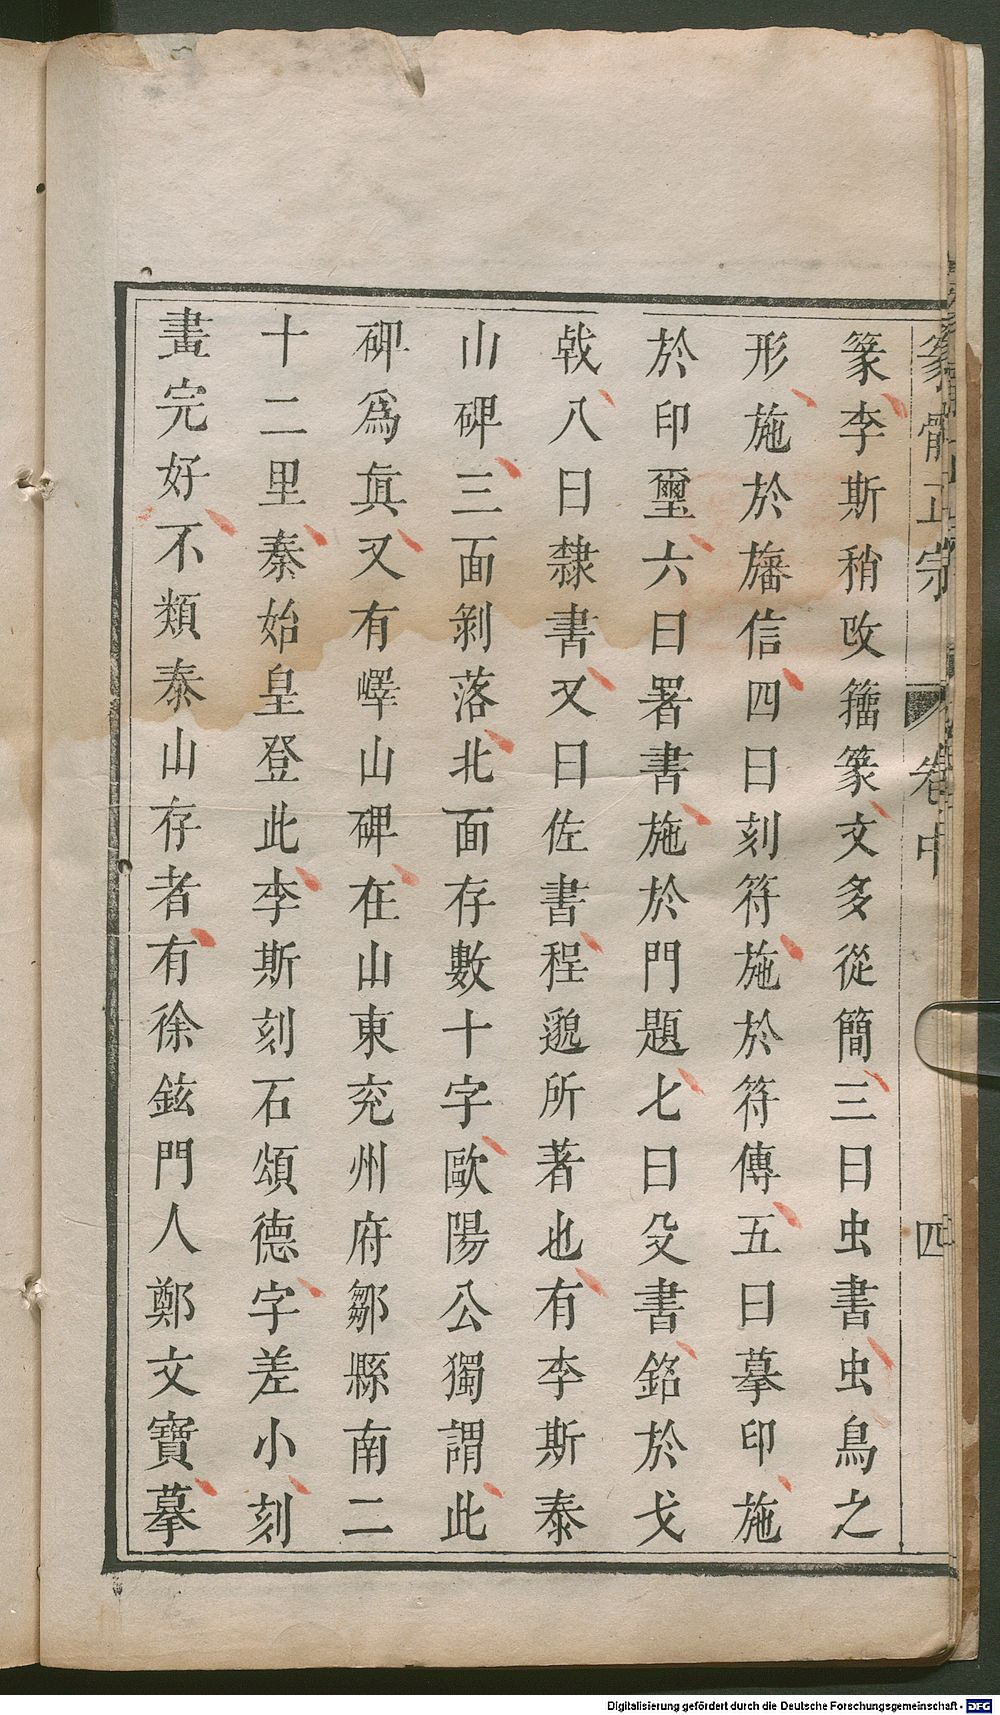 篆體正宗　卷中　四
篆李斯稍改籒篆文多從簡三曰虫書虫鳥之
形施於旛信四曰刻符施於符傳五曰摹印施
於印璽六曰署書施於門題七曰殳書銘於戈
戟八曰隸書又曰佐書程邈所著也有李斯泰
山碑三面剝落北面存數十字歐陽公獨謂此
碑爲眞又有嶧山碑在山東兖州府鄒縣南二
十二里秦始皇登此李斯刻石頌德字差小刻
畫完好不類泰山存者有徐鉉門人鄭文寶摹
Digitalisierung gefördert durch die Deutsche Forschungsgemeinschaft - DFG